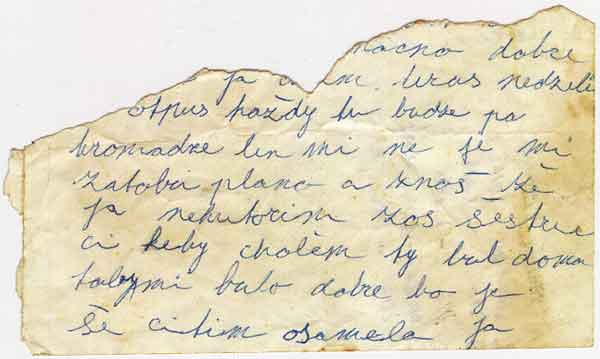 macno dobre
ja teras nedzeli
otpus každy tu budze pa
hromadze len mi ne je mi
zatobu plano a znaš že
ja nekutorim zos šestru
ci keby cholem ty bul doma
toby mi bulo dobre bo je
še citim osamela ja